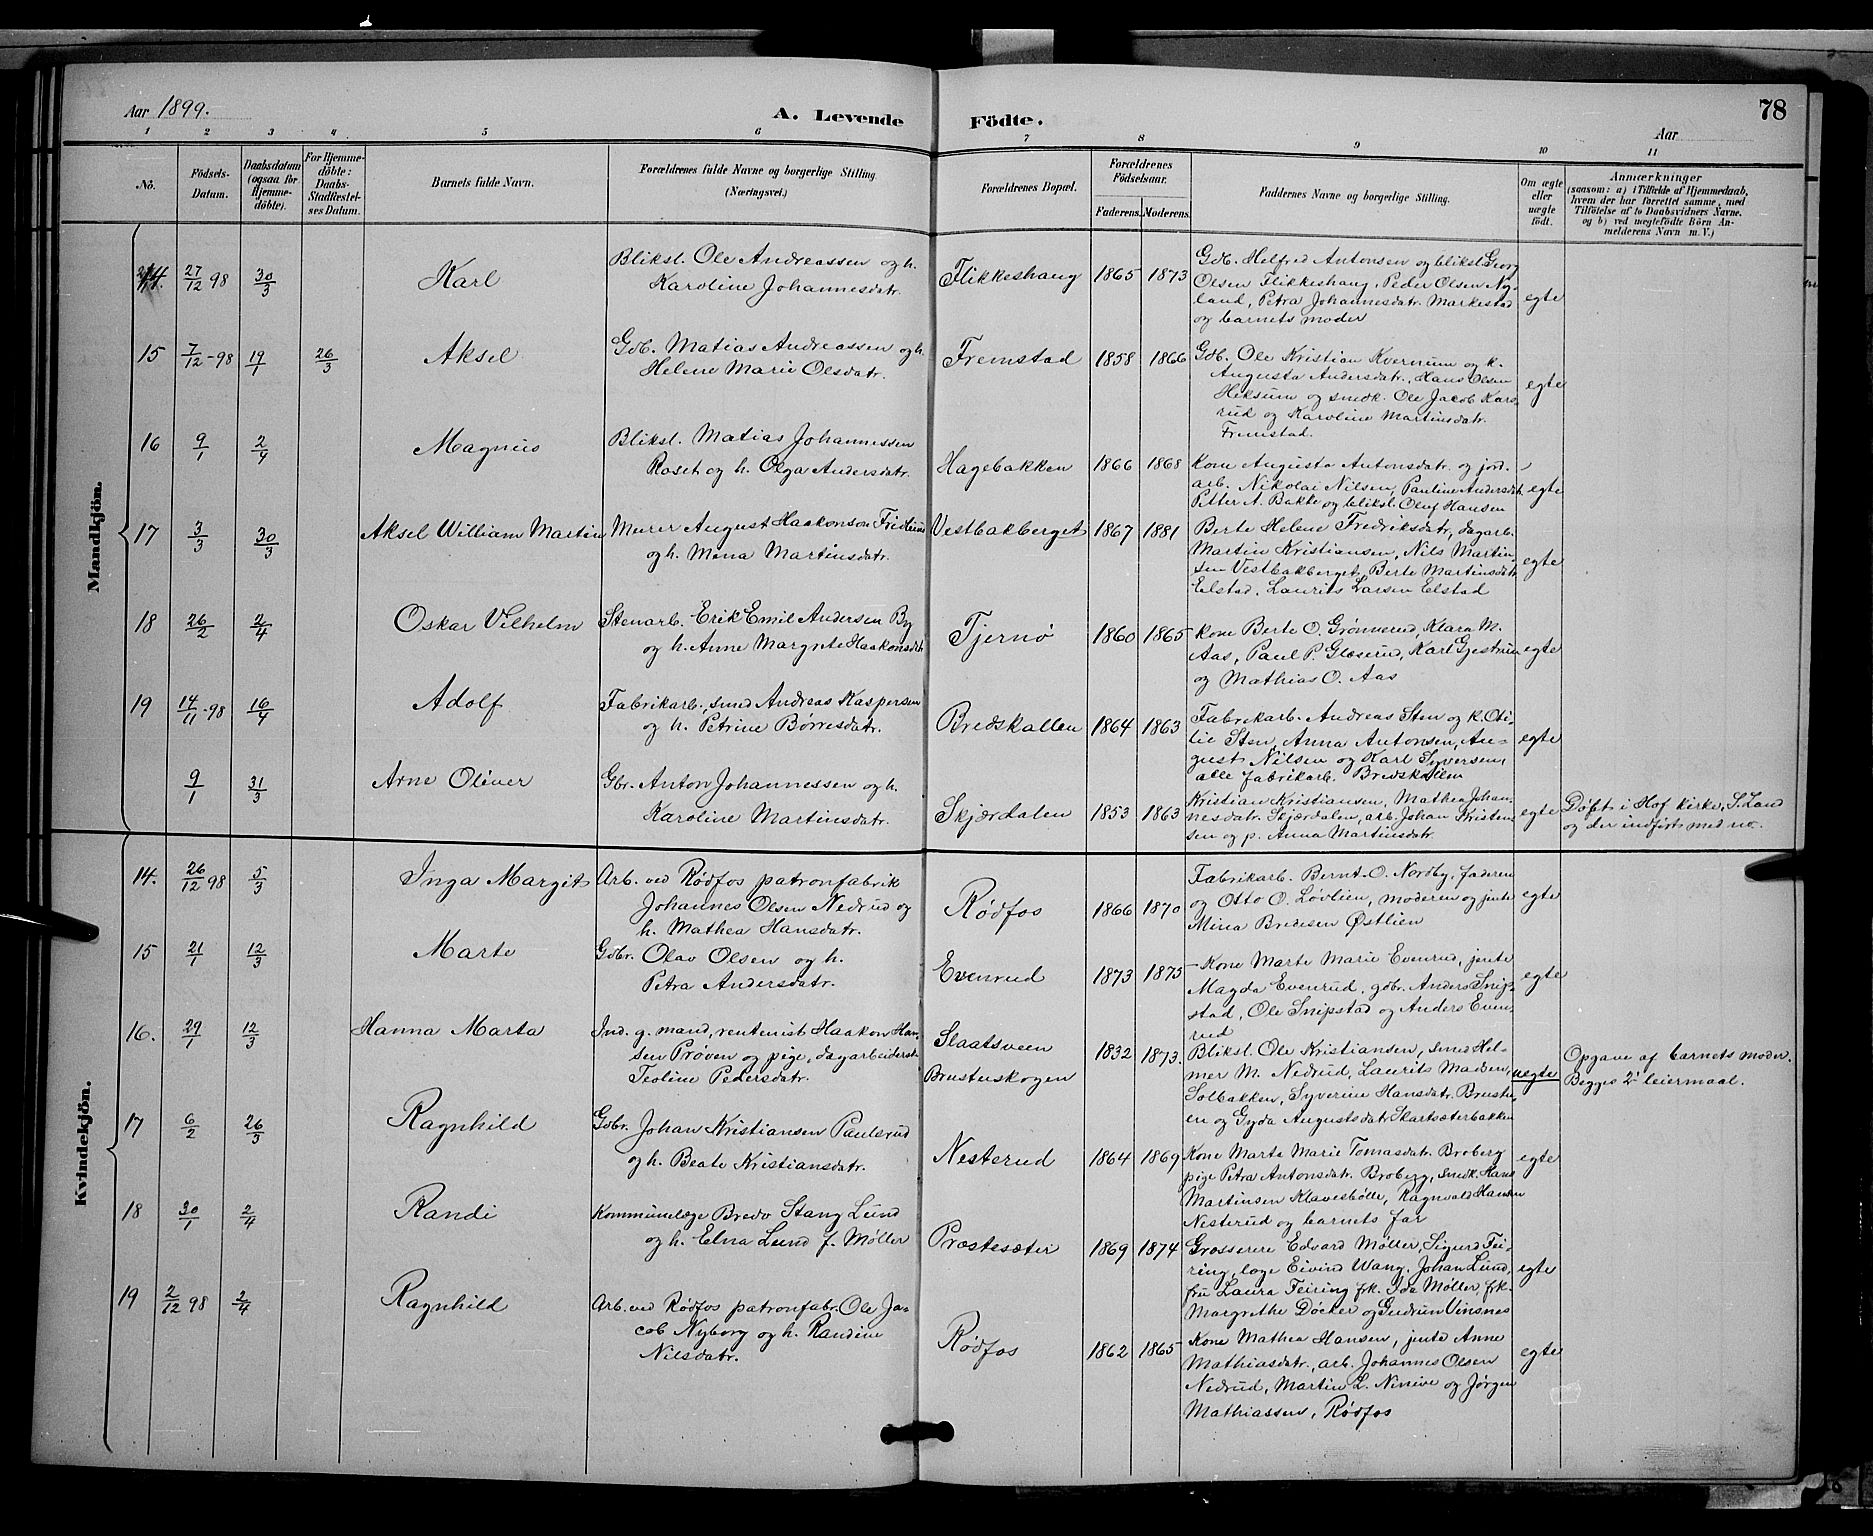 Aar 1899.
A. Levende Födte.
78
Aar
1 2 3 4 5 6 7 8 9 10 11
No.
Födsels-Datum.
Daabsdatum (ogsaa for Hjemme-döbte).
For Hjemme-döbte: Daabs-Stadfæstel-ses Datum.
Barnets fulde Navn.
Forældrenes fulde Navne og borgerlige Stilling (Næringsvei.)
Forældrenes Bopæl.
Forældrenes Födselsaar.
Faderens. Moderens.
Faddernes Navne og borgerlige Stilling.
Om ægte eller uægte födt.
Anmærkninger
(saasom: a) i Tilfælde af Hjemmedaab,
hvem der har forrettet samme, med
Tilföielse af to Daabsvidners Navne.
og b) ved uægtefödte Börn An-
melderens Navn m. V.)
Mandkjön.
14. 27/12 98 30/3 Karl
Bliksl. Ole Andreassen og h.
Karoline Johannesdatr.
Flikkeshaug 1865 1873
Gdb. Helfred Antonsen og bliksl. Georg
Olsen Flikkeshaug, Peder Olsen Ny-
land, Petra Johannesdatr. Markestad
og barnets moder
egte
15 7/12 -98 19/1 26/3 Aksel
Gdb. Matias Andreassen og h.
Helene Marie Olsdatr.
Fremstad 1858 1866
Gdb. Ole Kristian Kvernum og k.
Augusta Andersdatr., Hans Olsen
Heksum og smedk. Ole Jacob Kars-
rud og Karoline Martinsdatr.
Fremstad.
egte
16 9/1 2/4 Magnus
Bliksl. Matias Johannessen
Roset og h. Olga Andersdatr.
Hagebakken 1866 1868
Kone Augusta Antonsdatr. og jord-
arb. Nikolai Nilsen, Pauline Andersdatr.
Petter A. Bakke og bliksl. Oluf Hansen
egte
17 3/3 30/3 Aksel William Martin
Murer August Haakonson Fridlund
og h. Mina Martinsdatr.
Vestbakberget 1867 1881
Berte Helene Fredriksdatr, dagarb.
Martin Kristiansen, Nils Martin-
sen Vestbakberget, Berte Martinsdatr.
Elstad, Laurits Larsen Elstad
egte
18 26/2 2/4 Oskar Vilhelm
Stenarb. Erik Emil Andersen By
og h. Anne Margrete Haakonsdatr.
Tjernø 1860 1865
Kone Berte O. Grønnerud, Klara M.
Aas, Paul P. Glæserud, Karl Gjestrum
og Mathias O. Aas
egte
19 14/11 -98 16/4 Adolf
Fabrikarb., smed Andreas Kaspersen
og h. Petrine Børresdatr.
Bredskallen 1864 1863
Fabrikarb. Andreas Sten og k. Oti-
lie Sten, Anna Antonsen, Au-
gust Nilsen og Karl Syversen,
alle fabrikarb. Bredskallen
egte
9/1 31/3 Arne Oliver
Gbr. Anton Johannessen og h.
Karoline Martinsdatr.
Skjærdalen 1853 1863
Kristian Kristiansen, Mathea Johan-
nesdatr. Skjærdalen, arb. Johan Kristen-
sen og p. Anna Martinsdatr.
egte
Døft i Hof kirke, S. Land
og der indført med no.
Kvindekjön.
14. 26/12 98 5/3 Inga Margit
Arb. ved Rødfos patronfabrik
Johannes Olsen Nedrud og
h. Mathea Hansdatr.
Rødfos 1866 1870
Fabrikarb. Bernt O. Nordby, faderen
og Otto O. Løvlien, moderen og jente
Mina Bredesen Østlien
egte
15 21/1 12/3 Marte
Gdbr. Olav Olsen og h.
Petra Andersdatr.
Evenrud 1873 1875
Kone Marte Marie Evenrud, jente
Magda Evenrud, gdbr. Anders Snip-
stad, Ole Snipstad og Anders Even-
rud
egte
16. 29/1 12/3 Hanna Marta
Ind. g. mand, rentenist Haakon Han-
sen Prøven og pige, dagarbeiderske
Teoline Pedersdatr.
Slaatsveen
Brustuskogen
1832 1873
Bliksl. Ole Kristiansen, smed Hel-
mer M. Nedrud, Laurits Madsen,
Solbakken, Syverine Hansdatr. Brustu-
en og Gyda Augustsdatr Skartsæterbakken
uegte
Opgave af barnets moder.
Begges 2' leiermaal.
17 6/2 26/3 Ragnhild
Gdbr. Johan Kristiansen Paulsrud
og h. Beate Kristiansdatr.
Nesterud 1864 1869
Kone Marte Marie Tomasdatr. Broberg
pige Petra Antonsdatr. Broberg, smedk. Hans
Martinsen Klavesbølle, Ragnvald Hansen
Nesterud og barnets far
egte
18 30/1 2/4 Randi
Kommunelæge Bredo Stang Lund
og h. Elna Lund f. Møller
Præstesæter 1869 1874
Grosserere Edvard Møller, Sigurd Fei-
ring, læge Eivind Wang. Johan Lund,
fru Laura Feiring frk. Ida Møller, frk.
Margrethe Døcker og Gudrun Vinsnes
egte
19 2/12 98 2/4 Ragnhild
Arb. ved Rødfos patronfabr. Ole Ja-
cob Nyborg og h. Randine
Nilsdatr.
Rødfos 1862 1865
Kone Mathea Hansen, jente Anne
Mathiasdatr., arb. Johannes Olsen
Nedrud, Martin L. Ninive og Jørgen
Mathiassen, Rødfos
egte